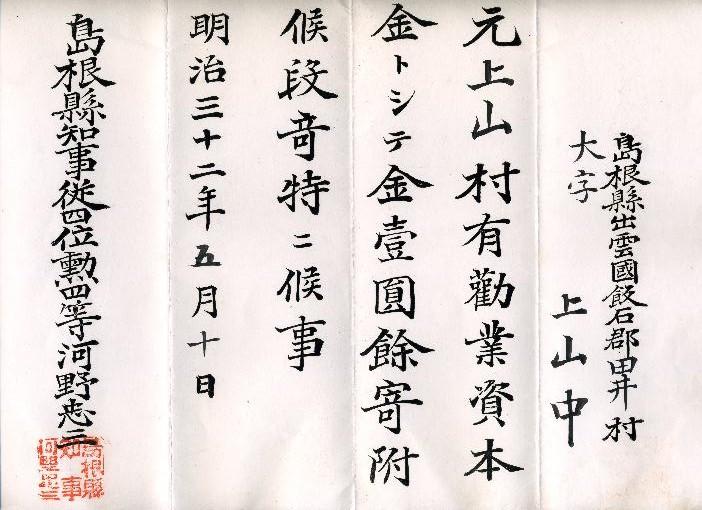 島根縣出雲國飯石郡田井村
大字
上山中
元上山村有勸業資本
金トシテ金壹圓餘寄附
候段竒特ニ候事
明治三十二年五月十日
島根縣知事從四位勲四等河野忠三
島根縣
知事
河野忠三